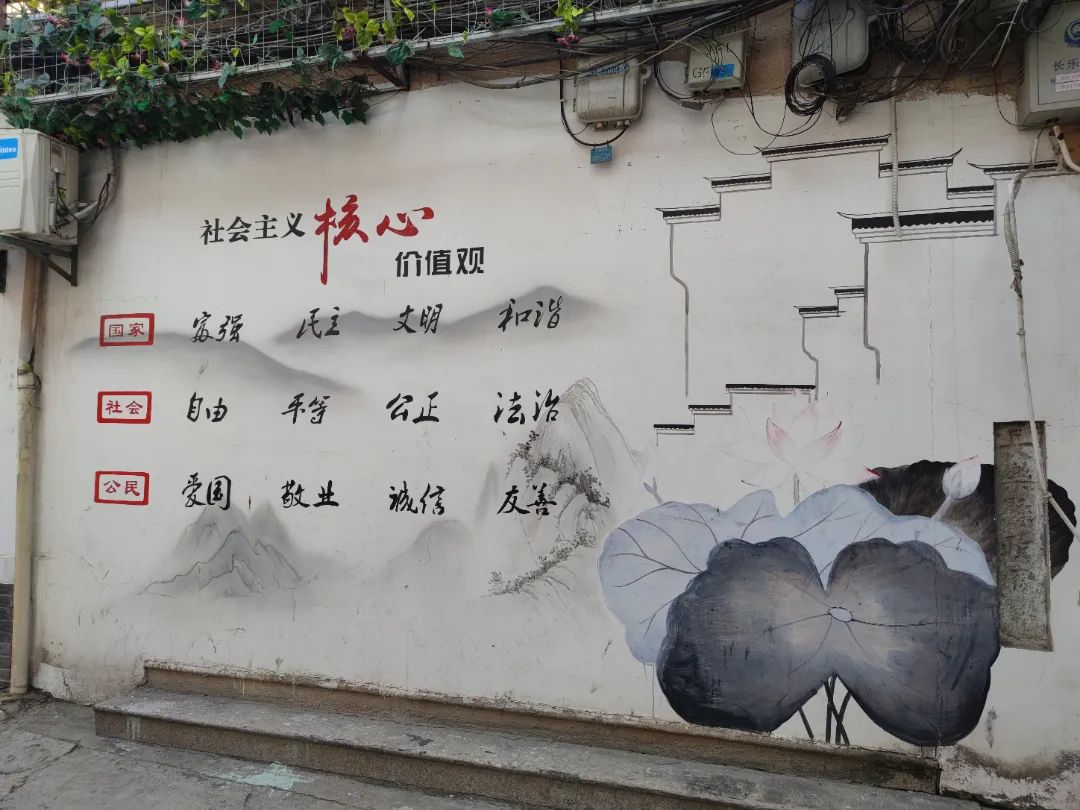 社会主义核心
价值观
国家 富强 民主 文明 和谐
社会 自由 平等 公正 法治
公民 爱国 敬业 诚信 友善
Midea
GF
长乐